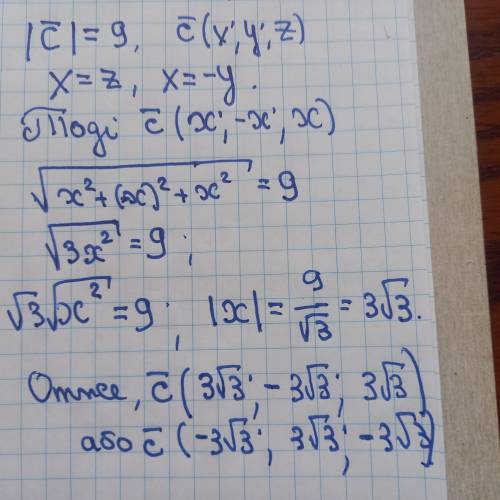 |c̄| = 9, c̄(x; y; z)
x = z, x = -y.
Тоді c̄(x; -x; x)
√(x² + (-x)² + x²) = 9
√(3x²) = 9;
√3√(x²) = 9; |x| = 9/√3 = 3√3.
Отже, c̄(3√3; -3√3; 3√3)
або c̄(-3√3; 3√3; -3√3)